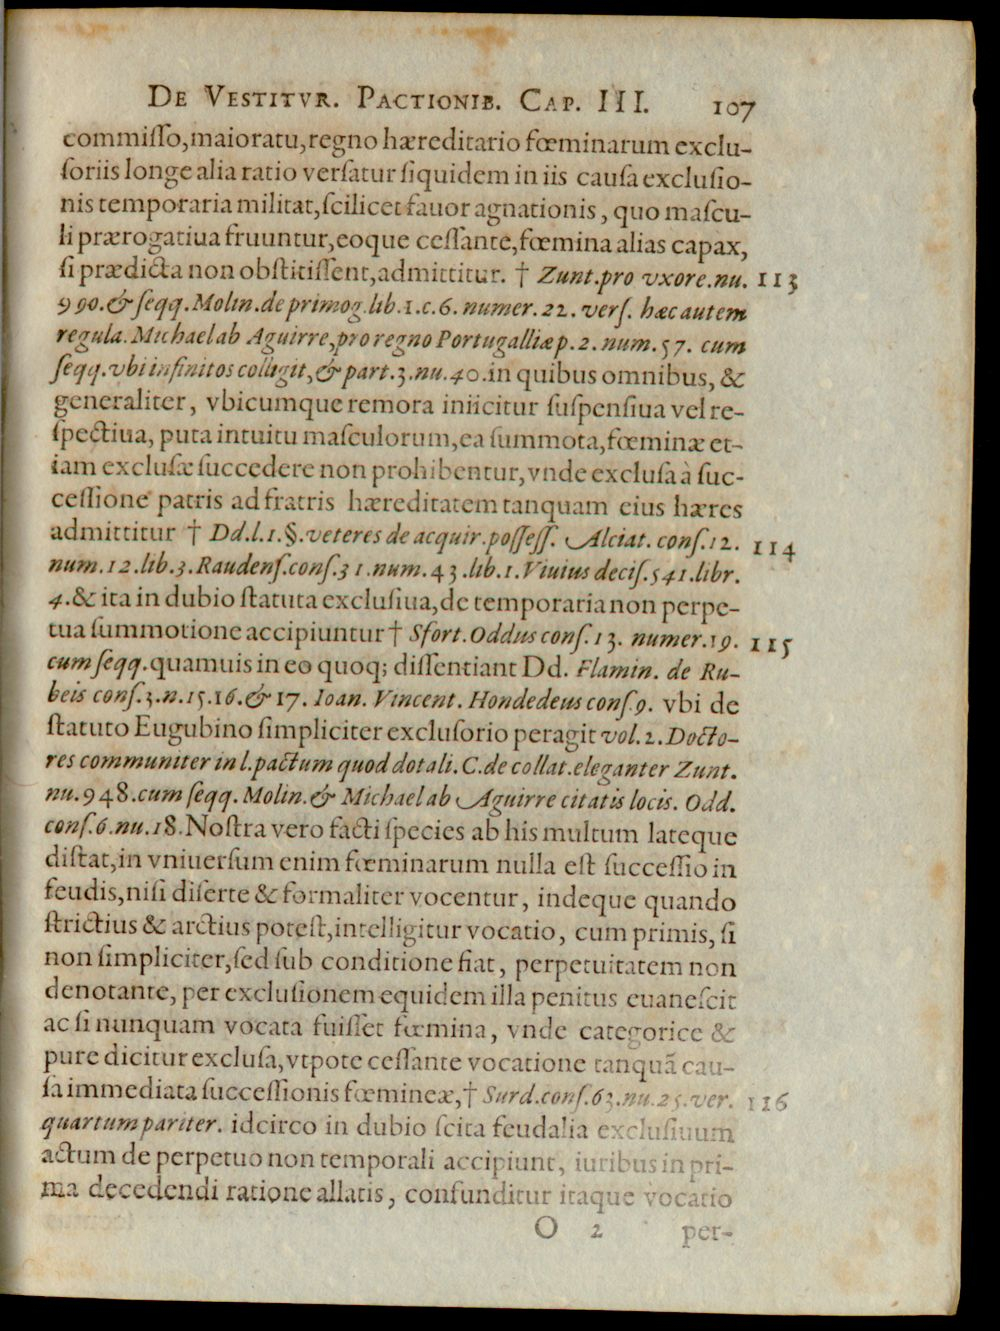 De Vestitvr. Pactionib. Cap. III. 107
commiſſo,maioratu,regno hæreditario fœminarum exclu-
ſoriis longe alia ratio verſatur ſiquidem in iis cauſa excluſio-
nis temporaria militat,ſcilicet fauor agnationis, quo maſcu-
li prærogatiua fruuntur,eoque ceſſante,fœmina alias capax,
ſi prædicta non obſtitiſſent,admittitur. † Zunt.pro vxore.nu. 113
990.& ſeqq.Molin.de primog.lib.1.c.6.numer.22. verſ. hæc autem
regula.Michael ab Aguirre,pro regno Portugalliæ p.2.num.57. cum
ſeqq.vbi infinitos colligit,& part.3.nu.40.in quibus omnibus, &
generaliter, vbicumque remora iniicitur ſuſpenſiua vel re-
ſpectiua, puta intuitu maſculorum,ea ſummota,fœminæ et-
iam excluſæ ſuccedere non prohibentur,vnde excluſa à ſuc-
ceſſione patris ad fratris hæreditatem tanquam eius hæres
admittitur † Dd.l.1.§.veteres de acquir.poſſeſſ. Alciat. conſ.12. 114
num.12.lib.3.Raudenſ.conſ.31.num.43.lib.1.Viuius deciſ.541.libr.
4.& ita in dubio ſtatuta excluſiua,de temporaria non perpe-
tua ſummotione accipiuntur † Sfort.Oddus conſ.13. numer.19. 115
cum ſeqq.quamuis in eo quoq; diſſentiant Dd. Flamin. de Ru-
beis conſ.3.n.15.16.& 17. Ioan. Vincent. Hondedeus conſ.9. vbi de
ſtatuto Eugubino ſimpliciter excluſorio peragit vol.2.Docto-
res communiter in l.pactum quod dotali.C.de collat.eleganter Zunt.
nu.948.cum ſeqq.Molin.& Michael ab Aguirre citatis locis. Odd.
conſ.6.nu.18.Noſtra vero facti ſpecies ab his multum lateque
diſtat,in vniuerſum enim fœminarum nulla eſt ſucceſſio in
feudis,niſi diſerte & formaliter vocentur, indeque quando
ſtrictius & arctius poteſt,intelligitur vocatio, cum primis, ſi
non ſimpliciter,ſed ſub conditione fiat, perpetuitatem non
denotante, per excluſionem equidem illa penitus euaneſcit
ac ſi nunquam vocata fuiſſet fœmina, vnde categorice &
pure dicitur excluſa,vtpote ceſſante vocatione tanquã cau-
ſa immediata ſucceſſionis fœmineæ,† Surd.conſ.63.nu.25.ver. 116
quartum pariter. idcirco in dubio ſcita feudalia excluſiuum
actum de perpetuo non temporali accipiunt, iuribus in pri-
ma decedendi ratione allatis, confunditur itaque vocatio
O 2 per-